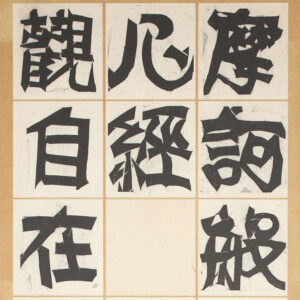 摩訶般
心經
觀自在